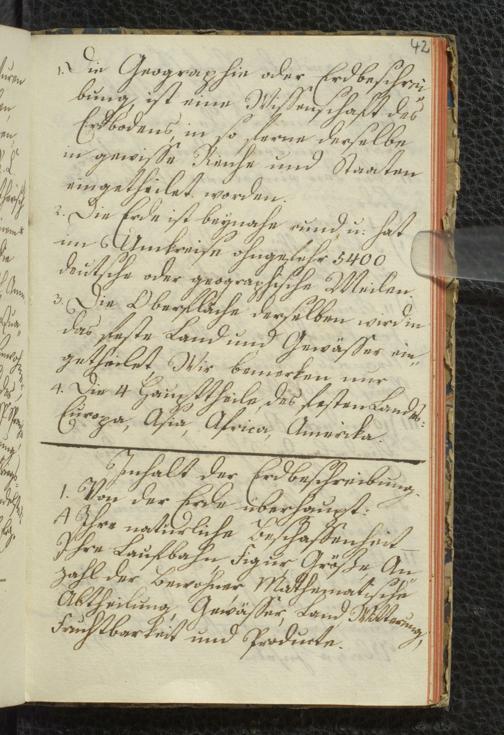 42
1. Die Geographie oder Erdbeschrei
bung, ist eine Wissenschaft des
Erdbodens, in so ferne derselbe
in gewisse Reiche und Staaten
eingetheilet worden.
2. Die Erde ist beynahe rund u. hat
im Umkreise ohngefehr 5400
deutsche oder geographische Meilen.
3. Die Oberfläche derselben wird in
das feste Land und Gewässer ein
getheilet. Wir bemerken nur
4. Die 4 Haupttheile des festen Landes:
Europa, Asia, Africa, Amerika.
Inhalt der Erdbeschreibung.
1. Von der Erde überhaupt:
A Ihre natürliche Beschaffenheit
Ihre Laufbahn, Figur Größe An
zahl der Bewohner Mathematische
Abtheilung, Gewässer, Land, Witterung,
Fruchtbarkeit und Producte.